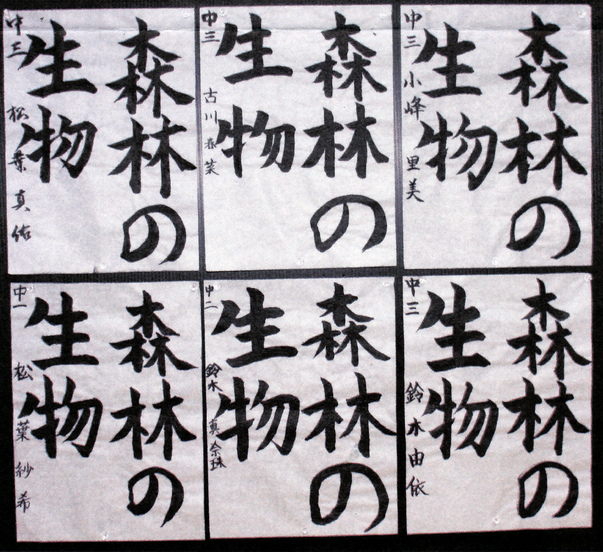 森林の
生物
中三 小峰里美
森林の
生物
中三 古川春菜
森林の
生物
中三 松葉真佑
森林の
生物
中三 鈴木由依
森林の
生物
中二 鈴木真奈珠
森林の
生物
中一 松葉紗希